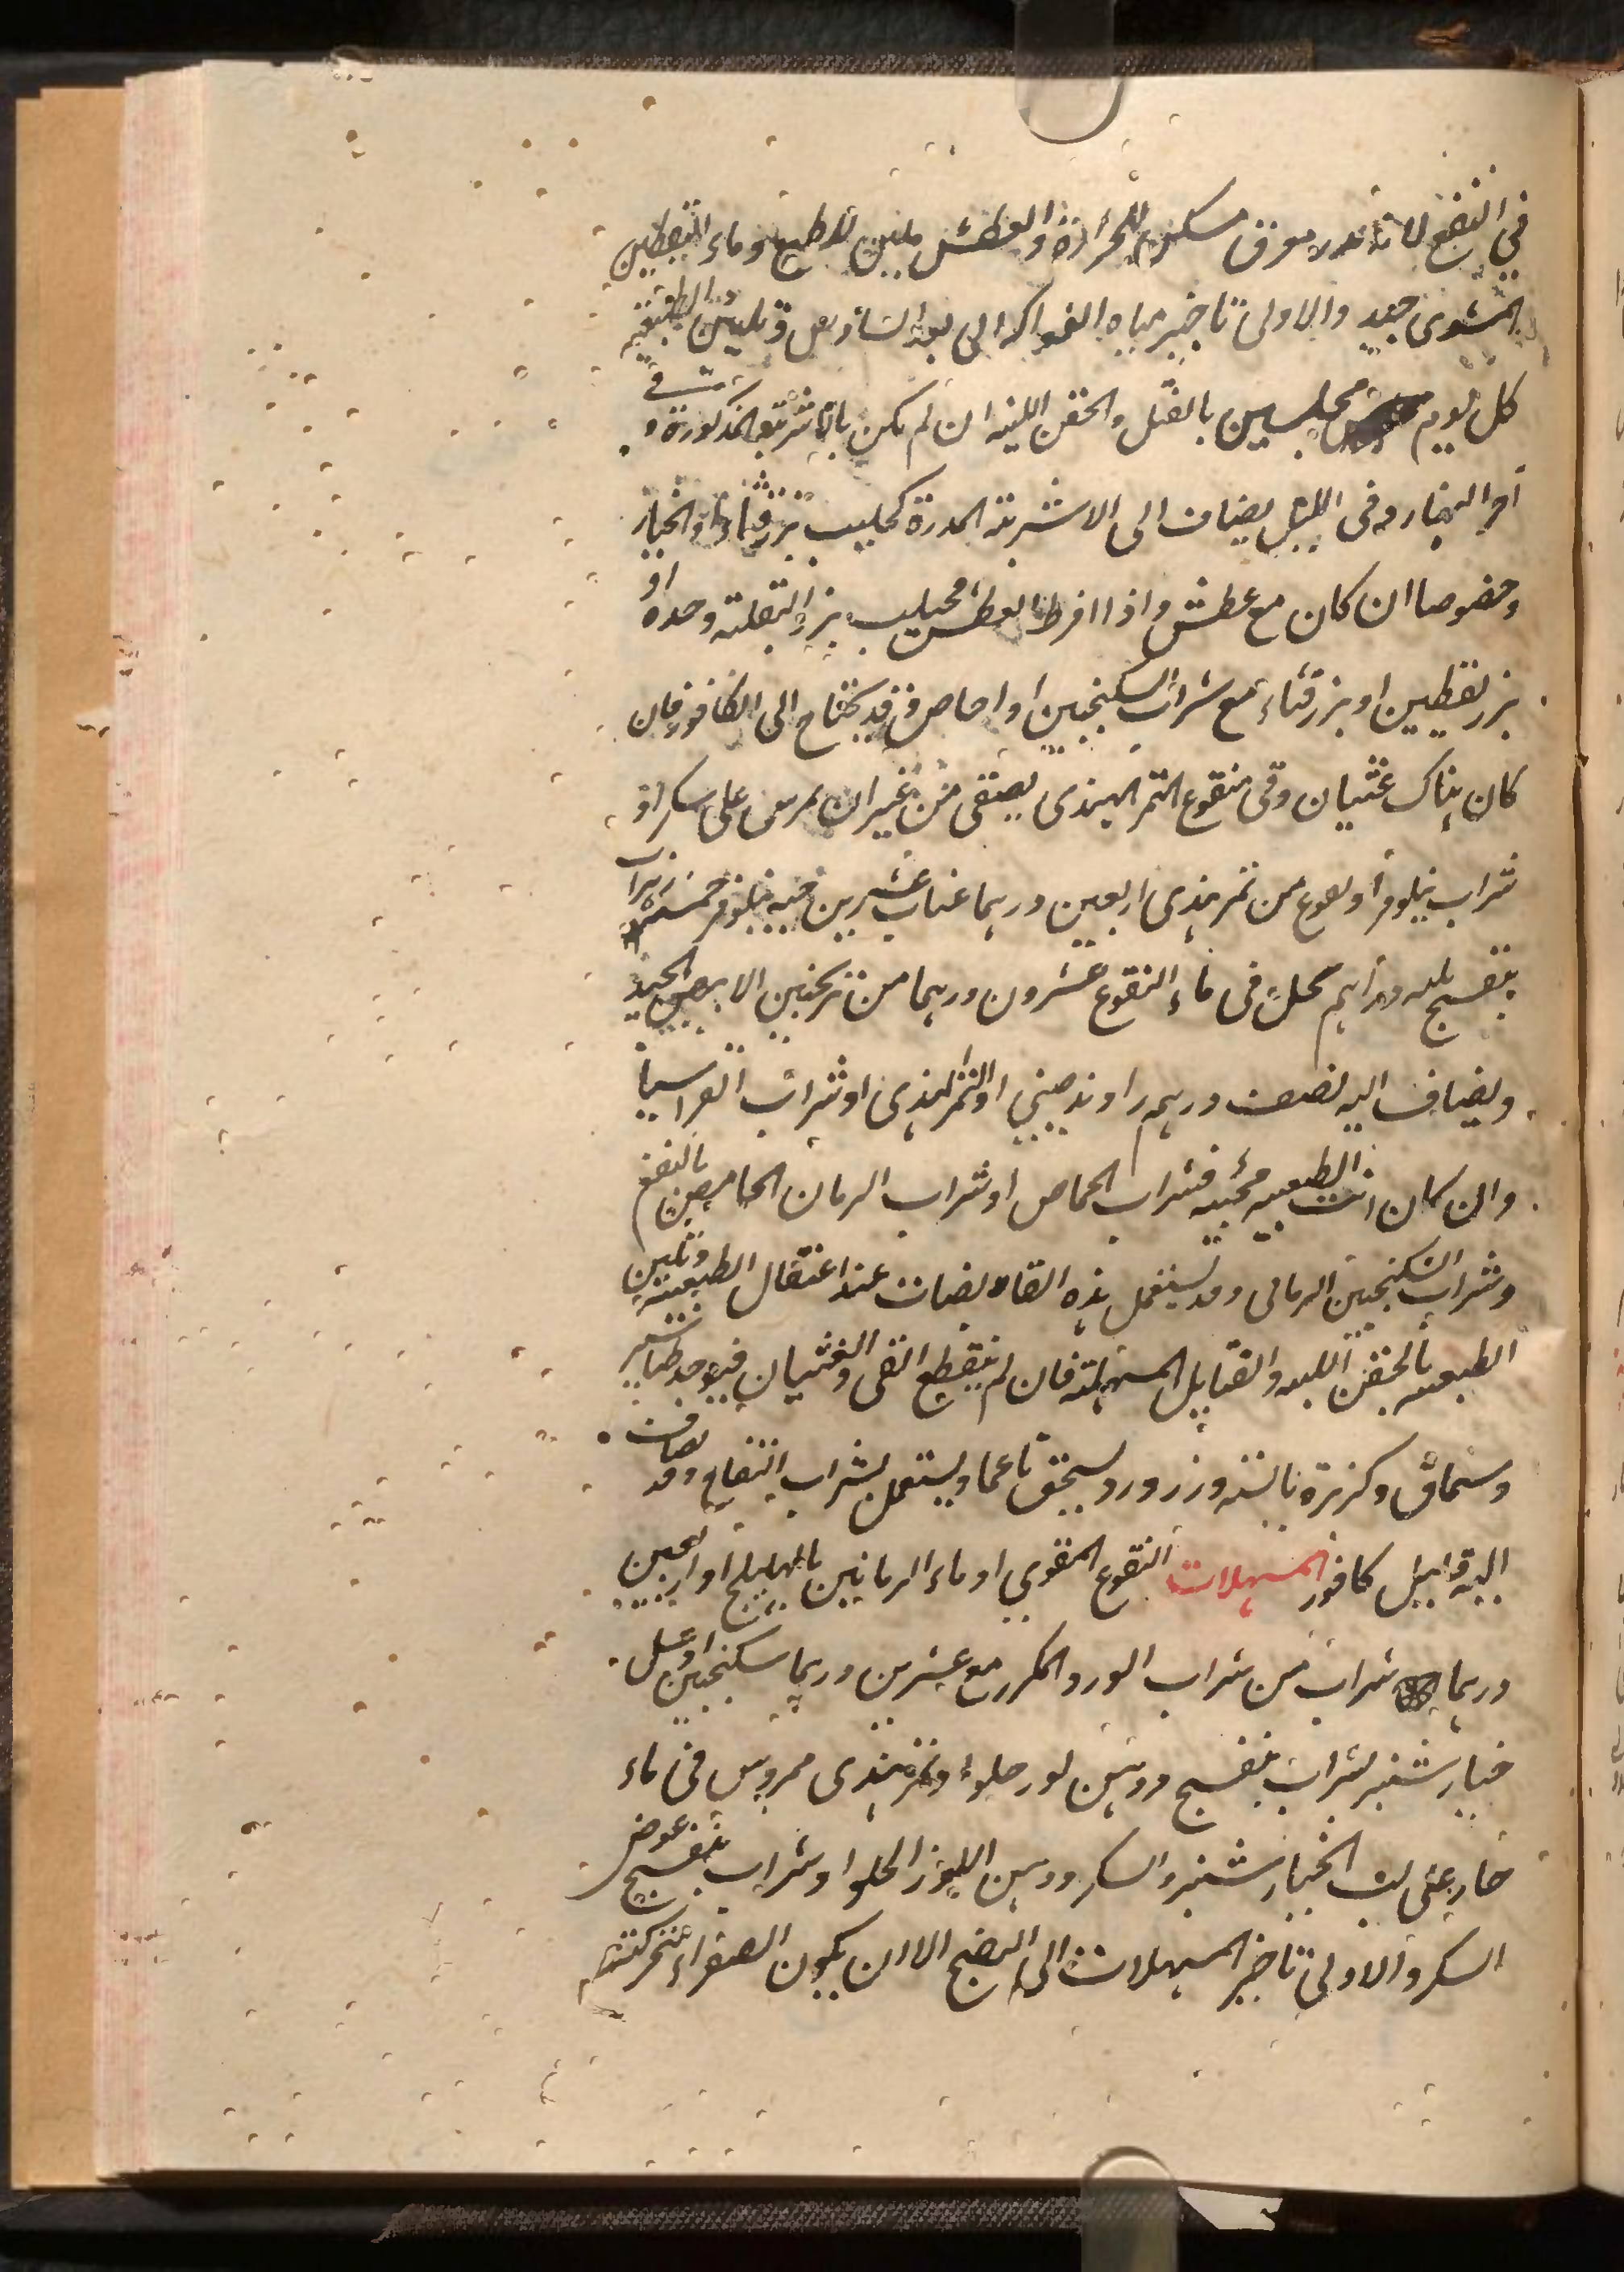 في النضج لانه مدر معرق مسكن للحرارة والعطش ملين للطبع وماء اليقطين
المشوى جيد والاولى تاخير مياه الفواكه الى بعد السابع وتليين الطبيعة
كل يوم مجلسين بالفتل والحقن اللينه ان لم يكن بالاشربة المذكورة و في
اخر النهار وفى الليل يضاف الى الاشربة المدرة كحليب بزر قثاء والخيار
وخصوصا ان كان مع عطش واذا افرط العطش فحليب بزر البقلة وحده او
بزر يقطين او بزر قثاء مع شراب السكنجبين او احاص وقد يحتاج الى الكافور فان
كان هناك غثيان وقى فنقوع التمر الهندى يصفى من غير ان يمرس على سكر او
شراب نيلوفر او نقوع من تمر هندى اربعين درهما عناب عشرين حبه نيلوفر خمس زهرات
بنفسج دراهم يحل فى ماء النقوع عشرون درهما من ترنجبين الابيض الجيد
ويضاف اليه نصف درهم راوند صيني او التمر الهندى او شراب القراسيا
وان كان الطبيعه مجيبه فشراب الحماض او شراب الرمان الحامض بالنعنع
وشراب السكنجبين الرمانى وقد يستعمل هذه القابضات عند اعتقال الطبيعة وتليين
الطبيعه بالحقن اللينه والفتايل المسهلة فان لم ينقطع القى والغثيان فيوخذ طباشير
وسماق وكزبرة يابسة وزرورد يسحق ناعما ويستعمل بشراب التفاح وقد يضاف
اليه قليل كافور المسهلات النقوع المقوي او ماء الرمانين بالهليلج او اربعين
درهما شراب من شراب الورد المكرر مع عشرين درهما سكنجبين او عسل
خيار شنبر بشراب بنفسج ودهن لوز حلو او تمر هندى ممروس فى ماء
حار على لب الخيار شنبر والسكر ودهن اللوز الحلو او شراب بنفسج عوض
السكر والاولى تاخير المسهلات الى النضج الا ان يكون الصفراء متحركة